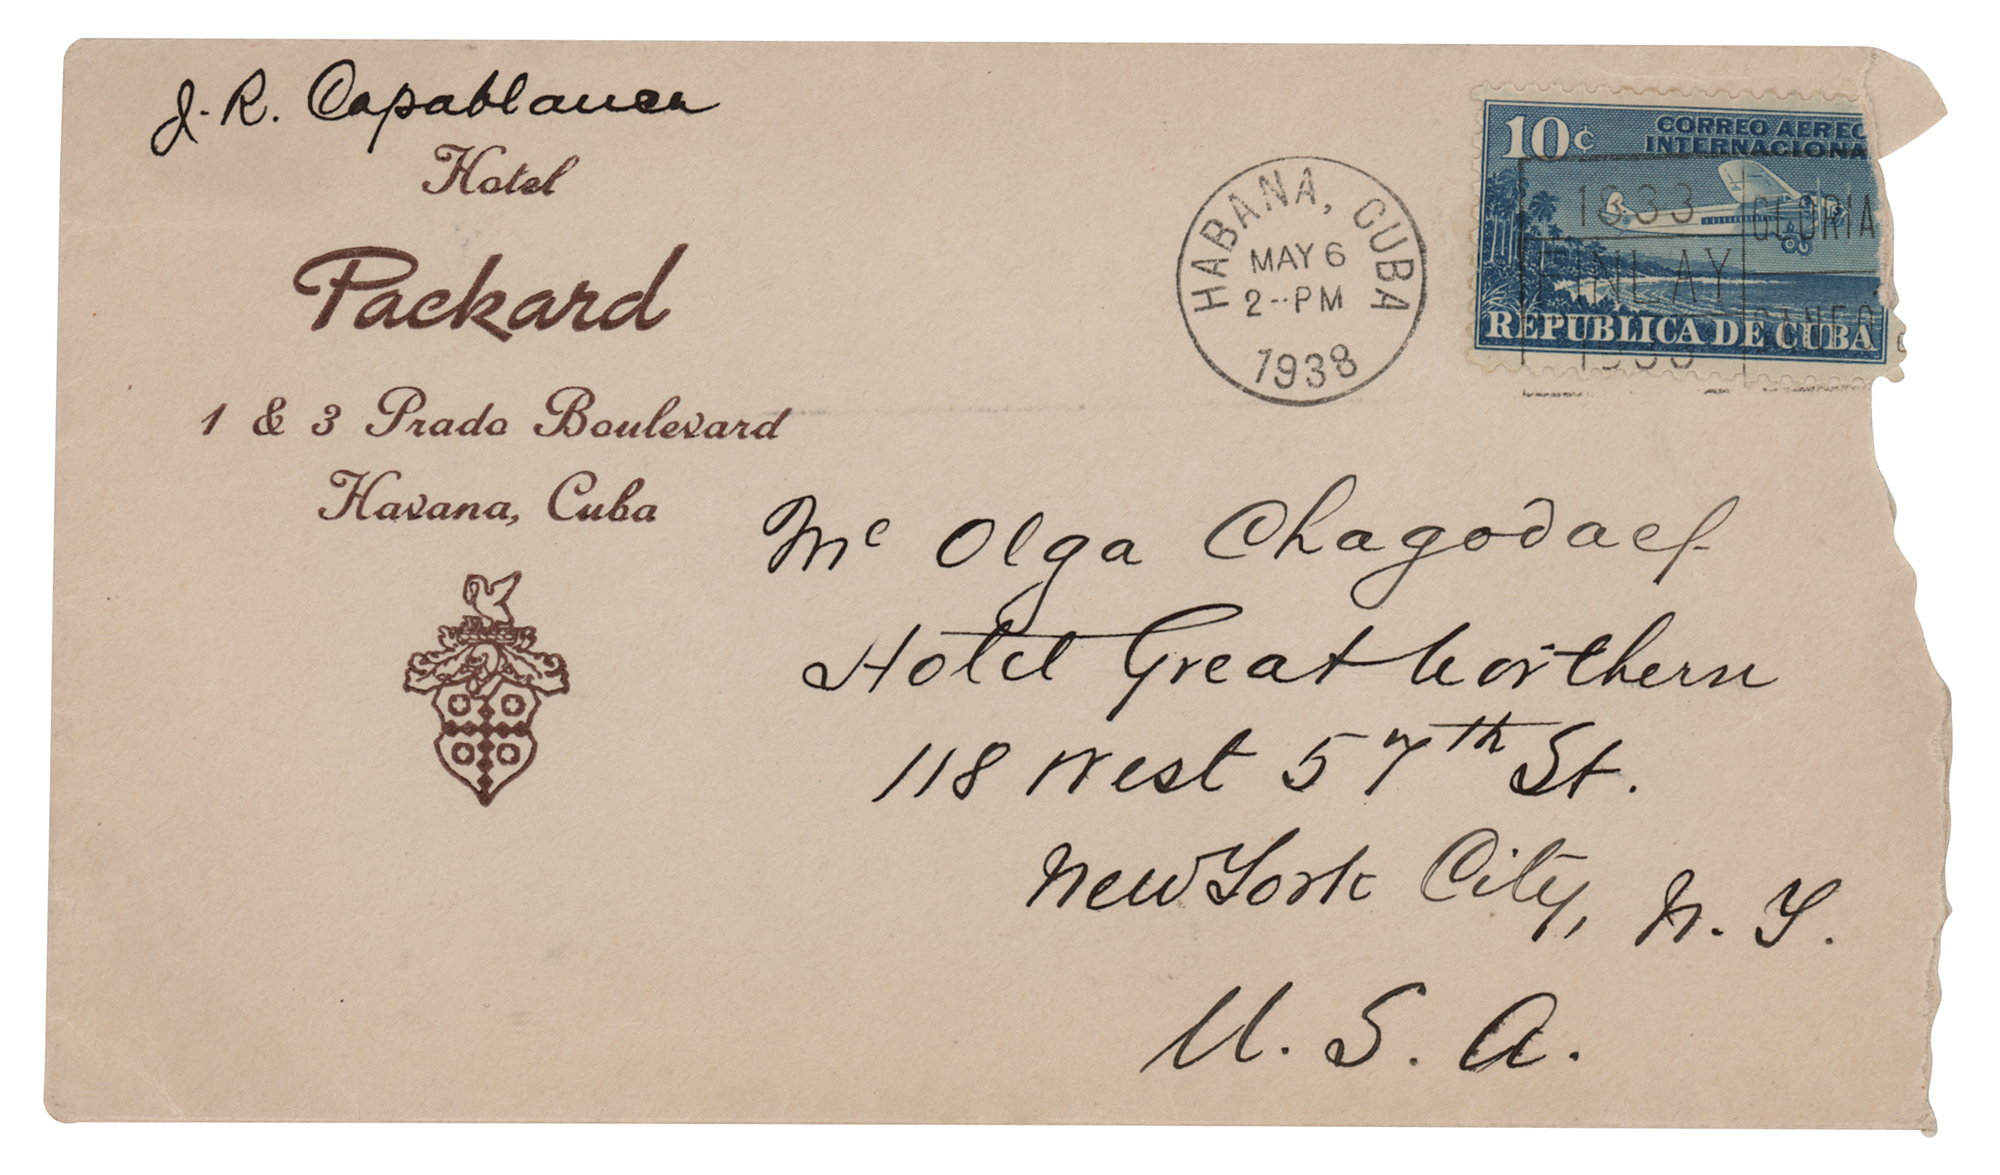 J. R. Capablanca
Hotel
Packard
1 & 3 Prado Boulevard
Havana, Cuba
HABANA, CUBA
MAY 6
2--PM
1938
10¢
CORREO AEREO
INTERNACIONA
REPUBLICA DE CUBA
1833
GLORIA
FINLAY
Me Olga Chagodaef
Hotel Great Northern
118 West 57th St.
New York City, N. Y.
U. S. A.